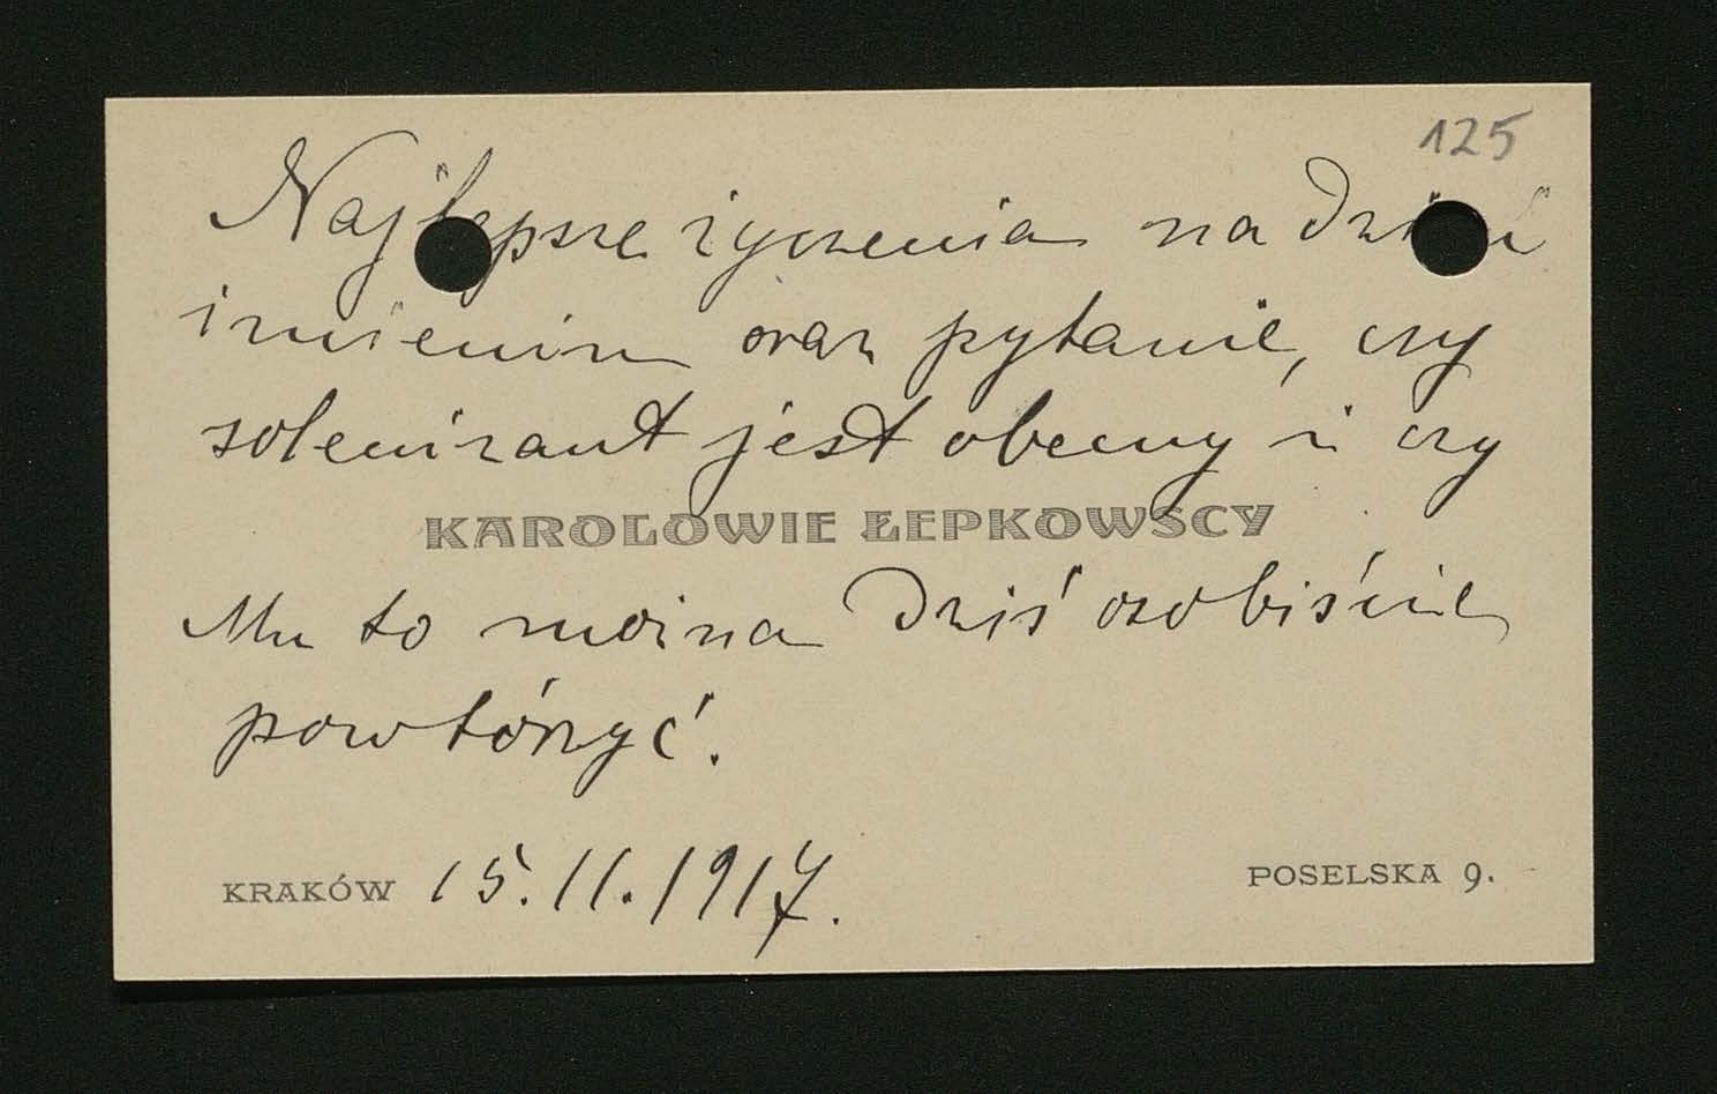 125
Najlepsze życzenia na dzień
imienin oraz pytanie, czy
solenizant jest obecny i czy
KAROLOWIE ŁEPKOWSCY
Mu to można dziś osobiście
powtórzyć.
KRAKÓW 15.11.1917. POSELSKA 9.